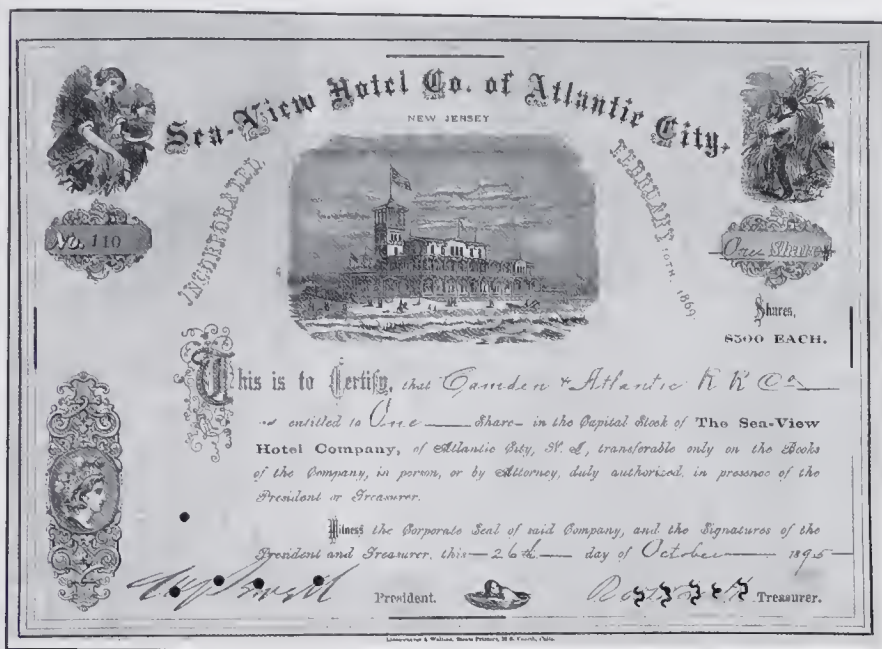 Sea-View Hotel Co. of Atlantic City.
NEW JERSEY
INCORPORATED
FEBRUARY 10TH. 1869.
No. 110
One Share
Shares,
$500 EACH.
This is to Certify, that Camden & Atlantic R R Co
is entitled to One Share in the Capital Stock of The Sea-View
Hotel Company, of Atlantic City, N. J., transferable only on the Books
of the Company, in person, or by Attorney, duly authorized, in presence of the
President or Treasurer.
Witness the Corporate Seal of said Company, and the Signatures of the
President and Treasurer, this 26th day of October 1895
President.
Treasurer.